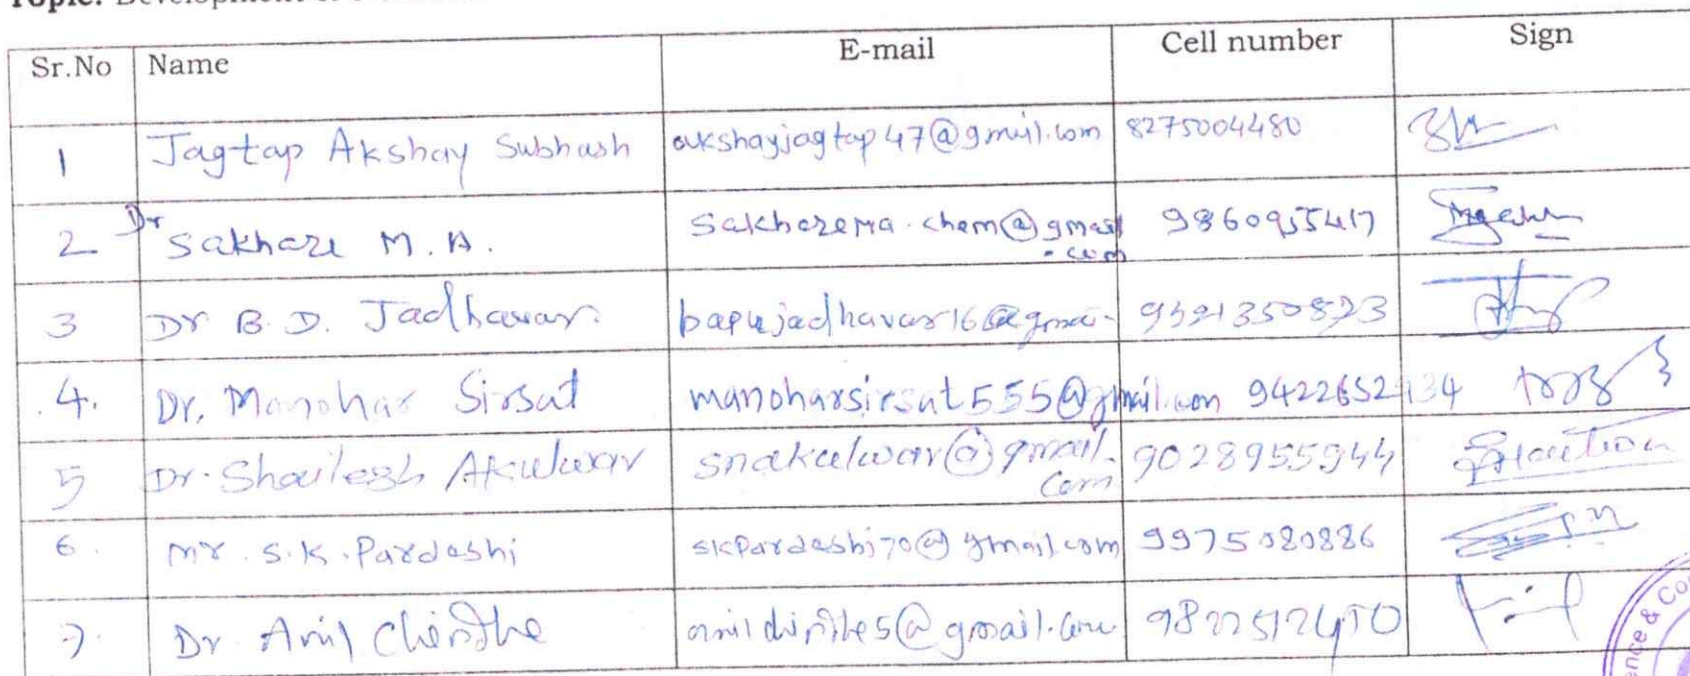 Topic: Development
Sr.No Name E-mail Cell number Sign
1 Jagtap Akshay Subhash akshayjagtap47@gmail.com 8275004480
2 Dr Sakhare M.A. sakharema.chem@gmail.com 9860955417
3 Dr B.D. Jadhavar. bapujadhavar16@gmai-
4. Dr. Manohar Sirsat manoharsirsat555@gmail.com 9422652134
5 Dr. Shailesh Akulwar snakulwar@gmail.com 9028955944
6. Mr. S.K. Pardeshi skpardeshi70@gmail.com 9975080886
7. Dr. Anil Chindhe